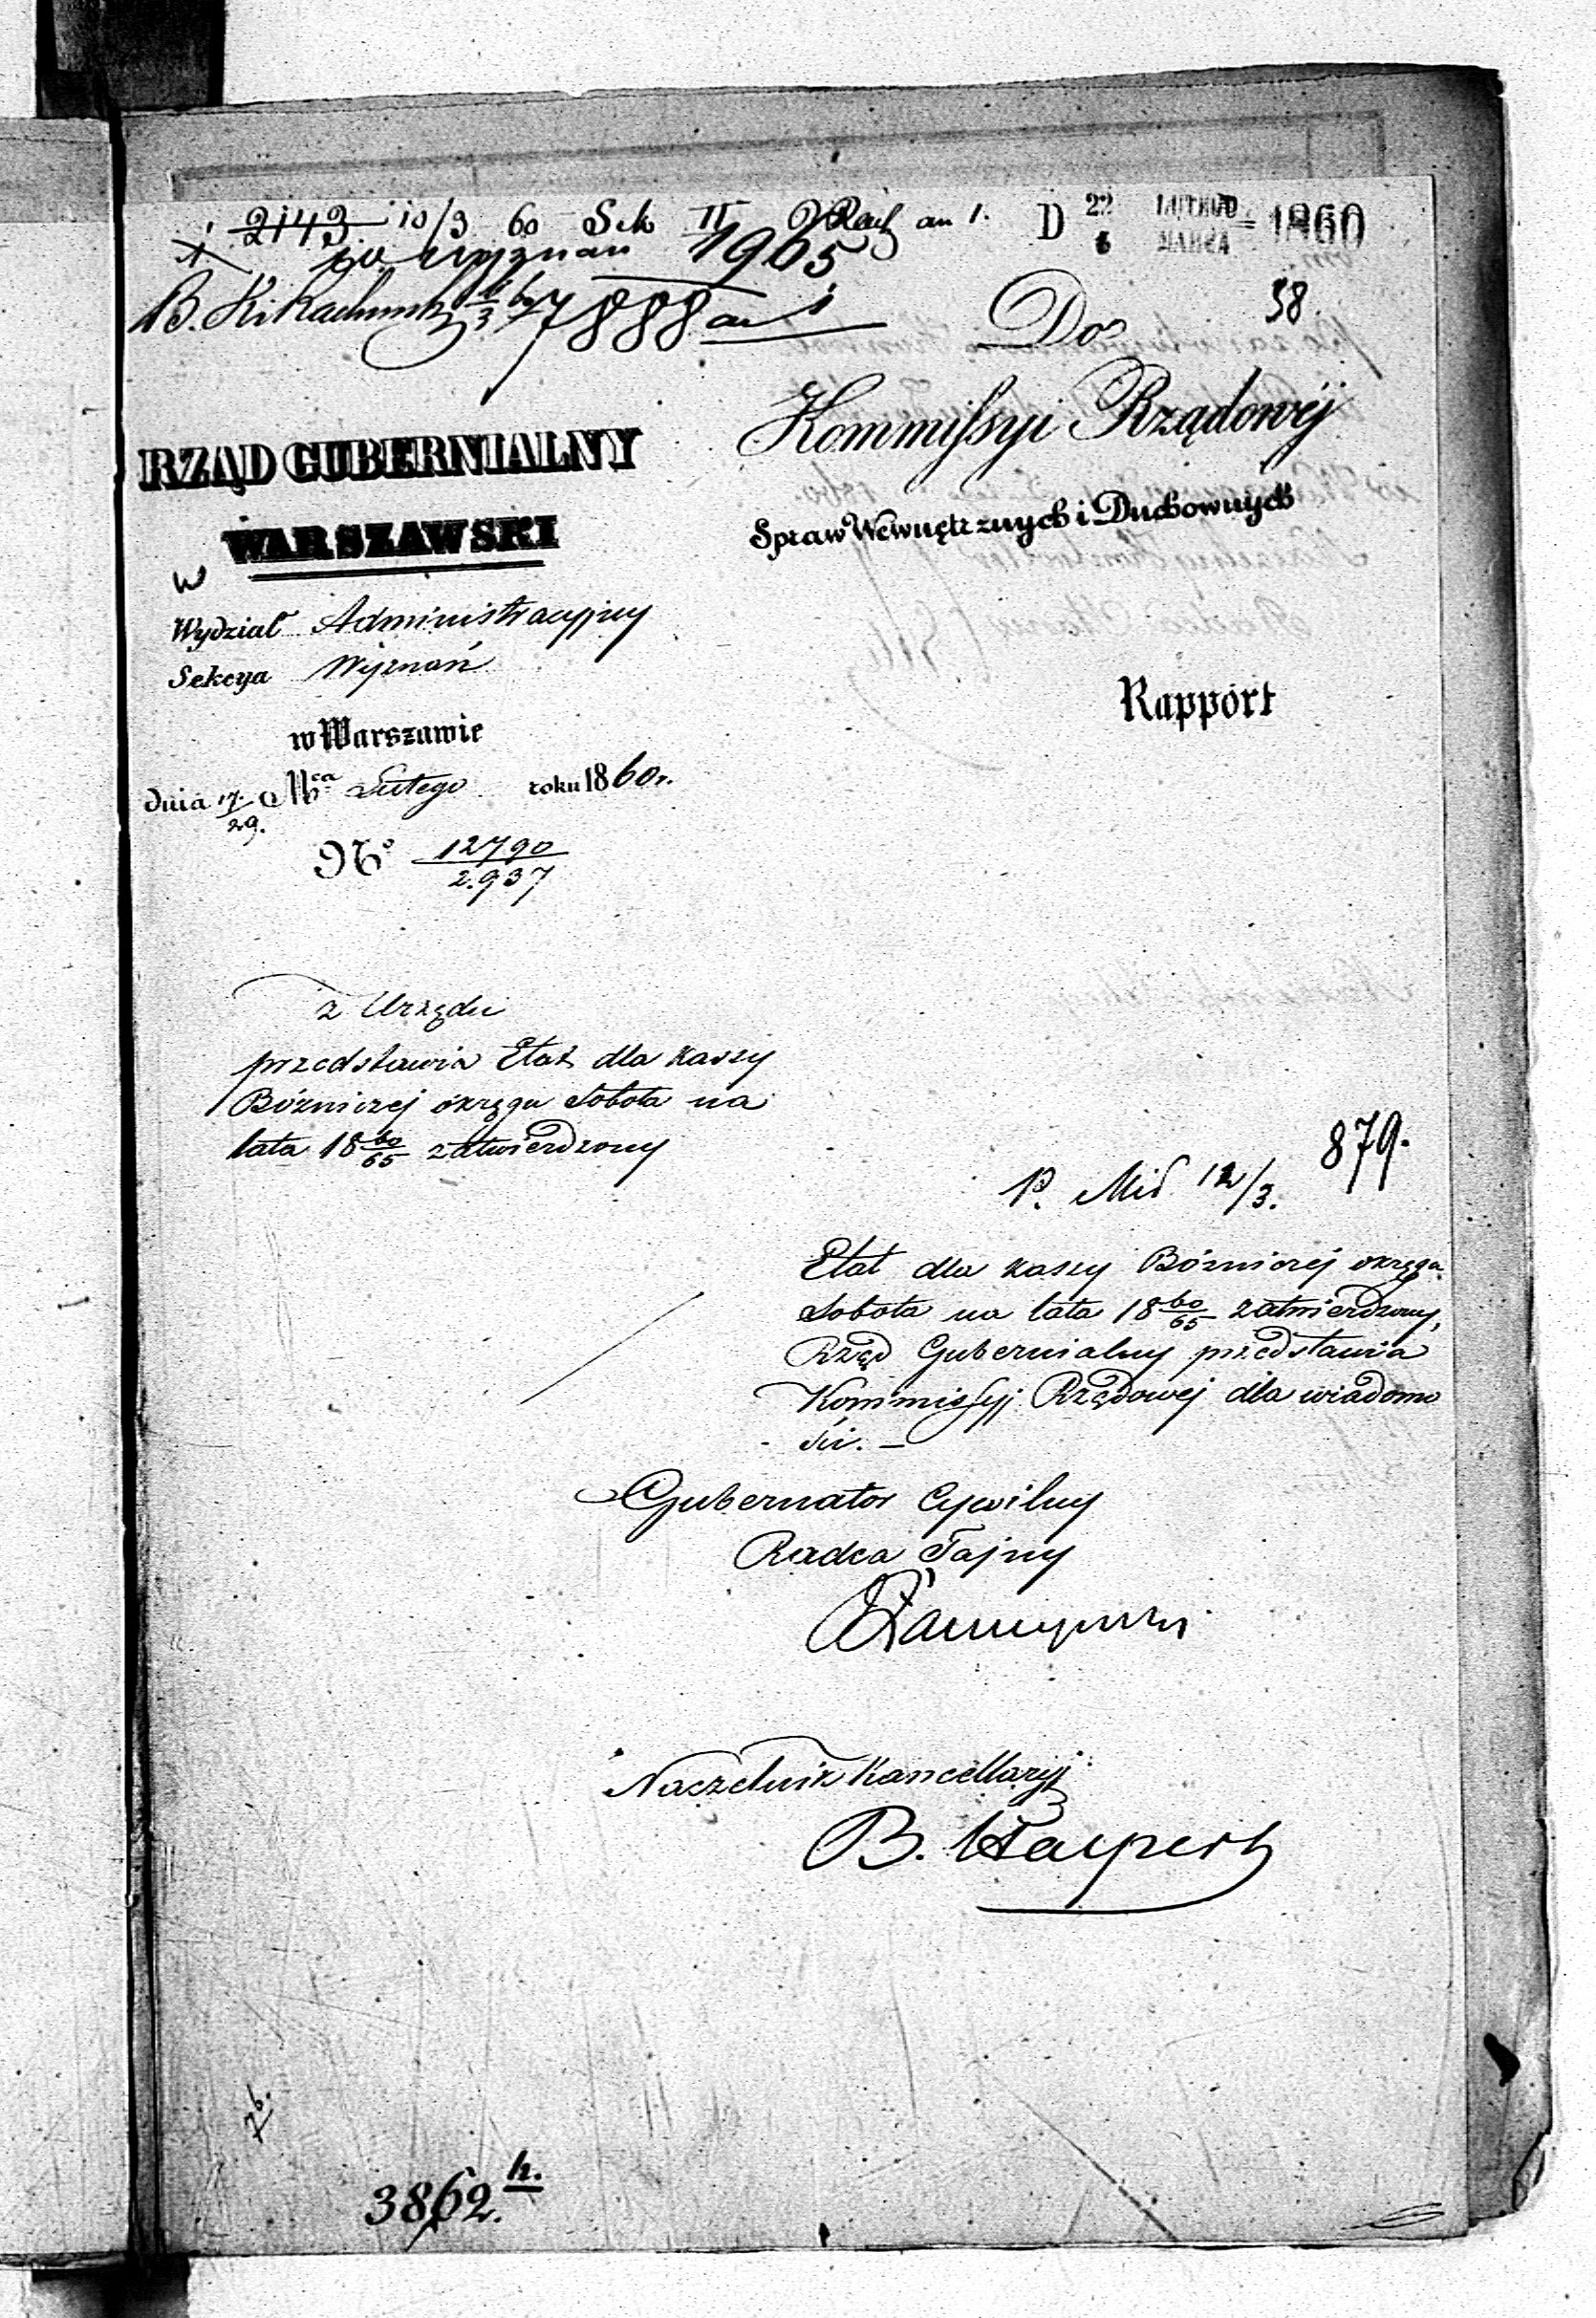 2143 10/3 60 Sek II an 1.
D 22/6 LUTEGO/MARCA 1860
1905
7888 an 1
38.
Do
Kommissyi Rządowéj
Spraw Wewnętrznych i Duchownych
RZĄD GUBERNIALNY
WARSZAWSKI
w
Wydział Administracyjny
Sekcya Wyznań
w Warszawie
dnia 17/29 Mca Lutego roku 1860 r.
No 12790/2.937
Rapport
z Urzędu
przedstawia Etat dla kassy
Bóżniczej okręgu Sobota na
lata 18 60/65 zatwierdzony
879.
P. 12/3.
Etat dla kassy Bóżniczéj okręgu
Sobota na lata 18 60/65 zatwierdzony,
Rząd Gubernialny przedstawia
Kommissyi Rządowej dla wiadomo
- ści. —
Gubernator Cywilny
Radca Tajny
Naczelnik Kancellaryj
B. Halpert
76.
3862. h.